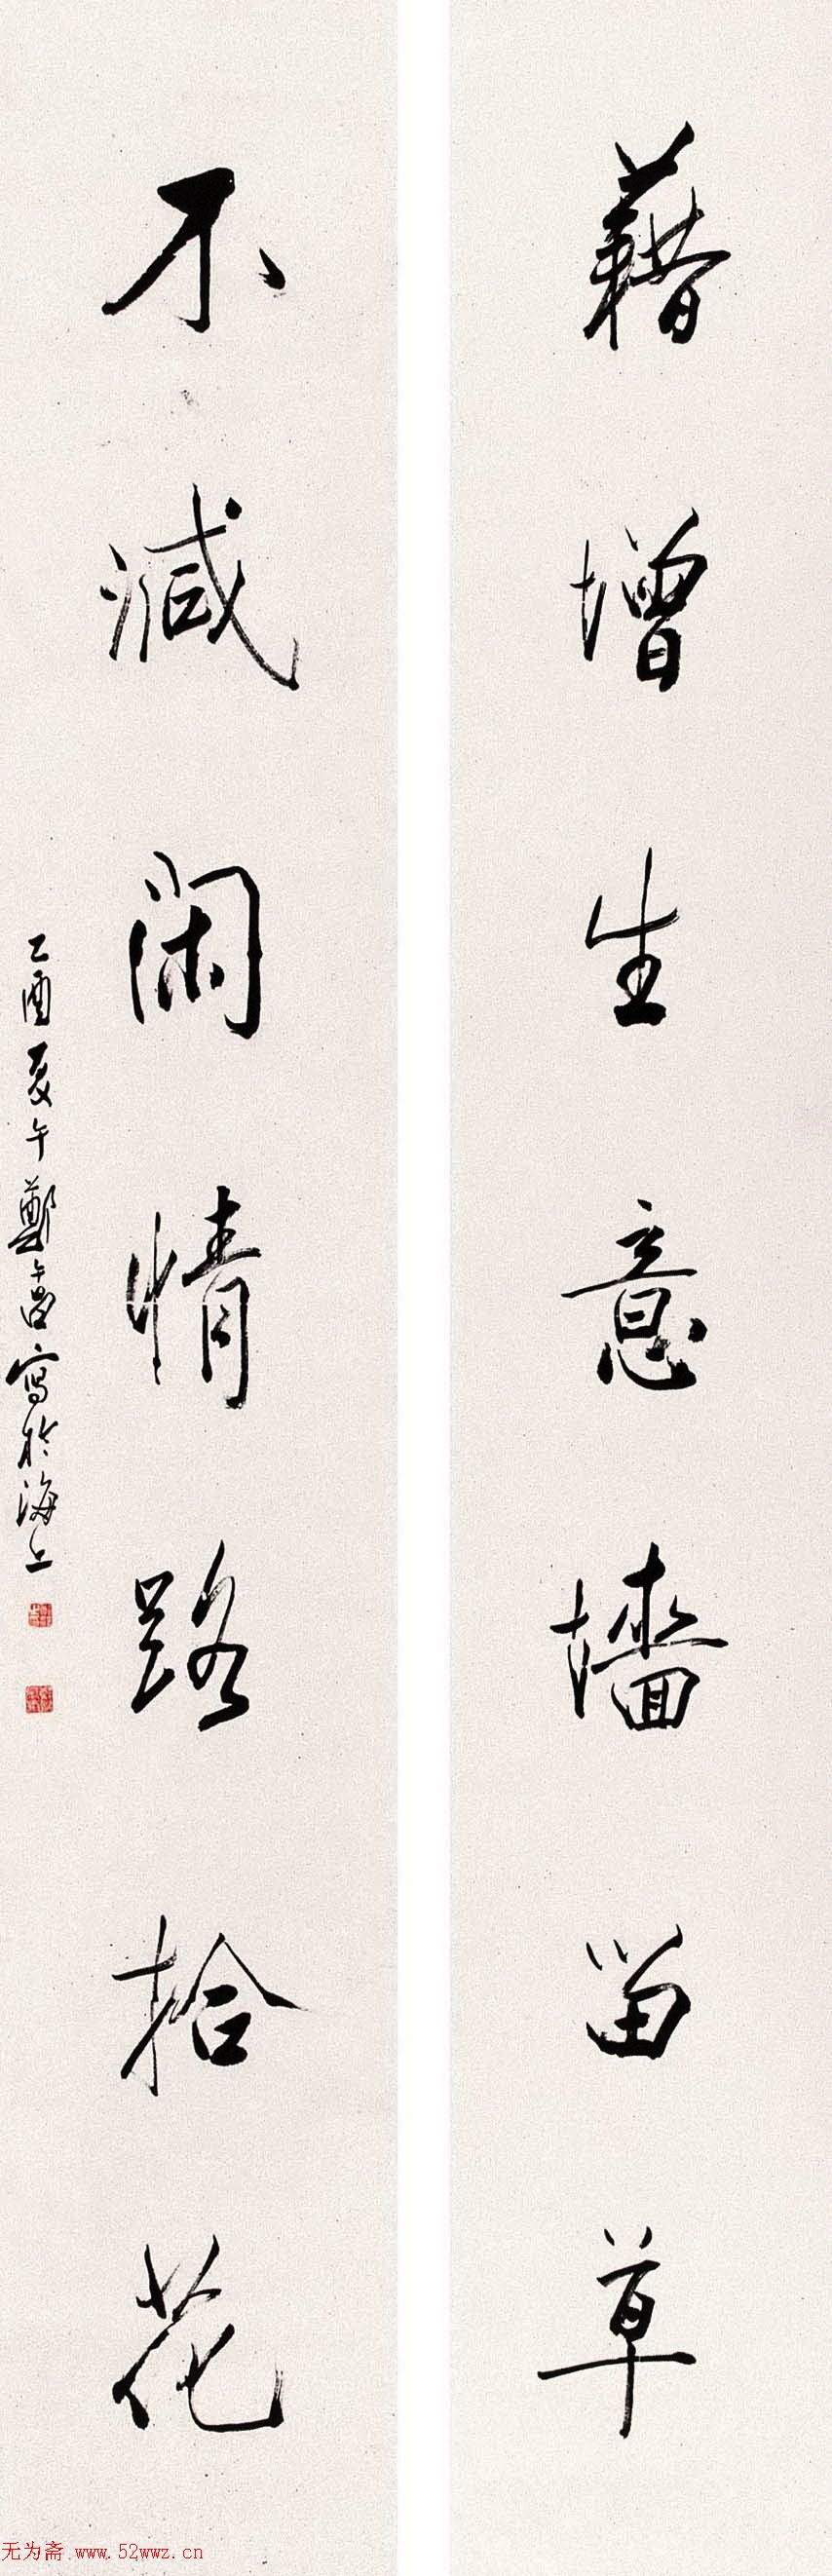 藉增生意墻留草
不減閑情路拾花
乙酉夏午鄭㐭寫於海上
无为斋 www.52wwz.cn